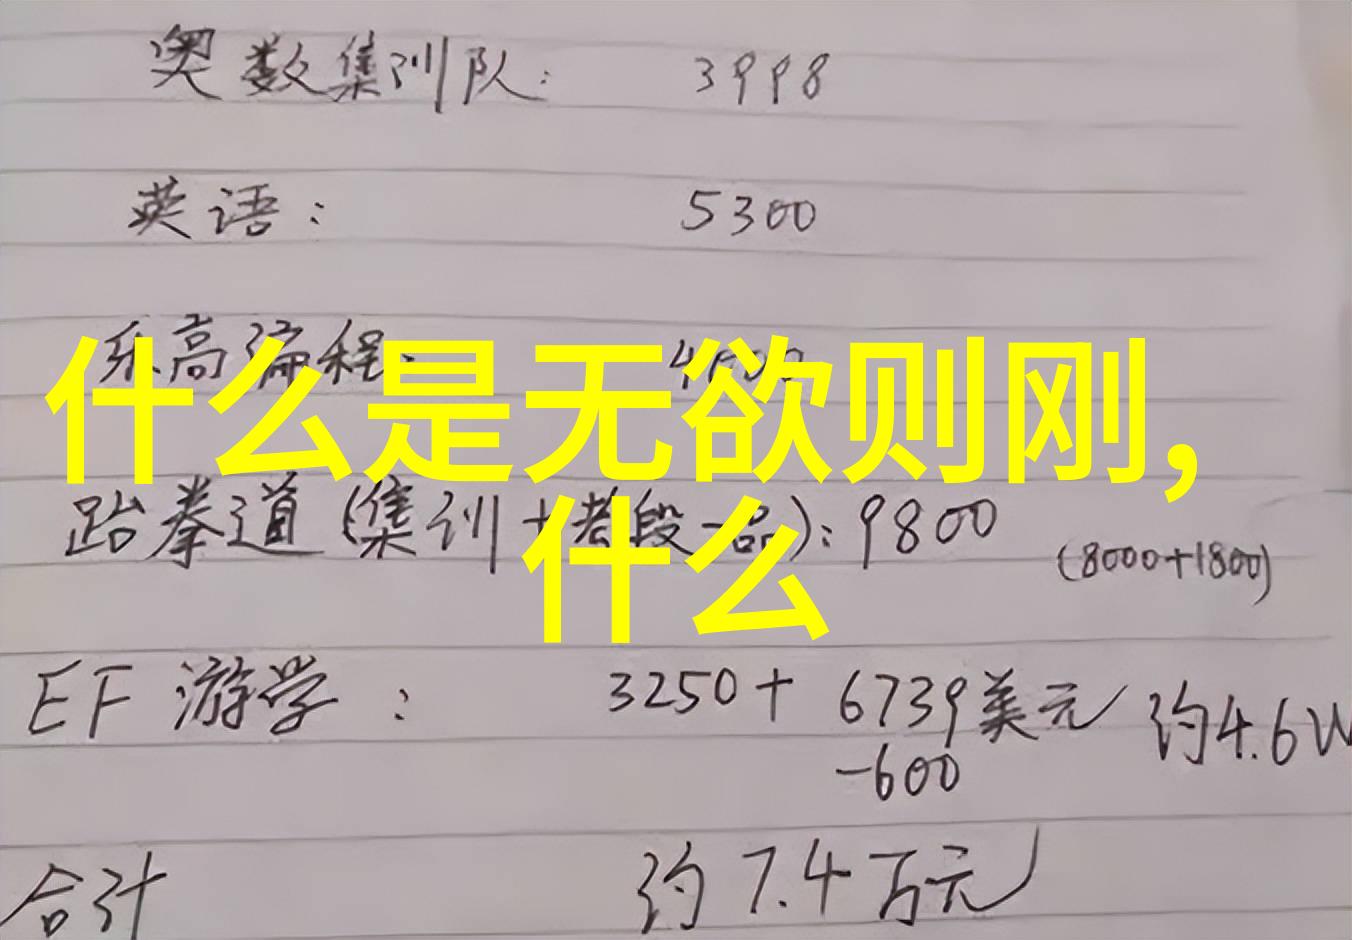 奥数集训队: 3998
英语: 5300
乐高编程:
什么是无欲则刚,
什么
跆拳道(集训+考段一品): 9800
(8000+1800)
EF 游学: 3250+ 6739美元 约4.6W
-600
合计 约7.4万元